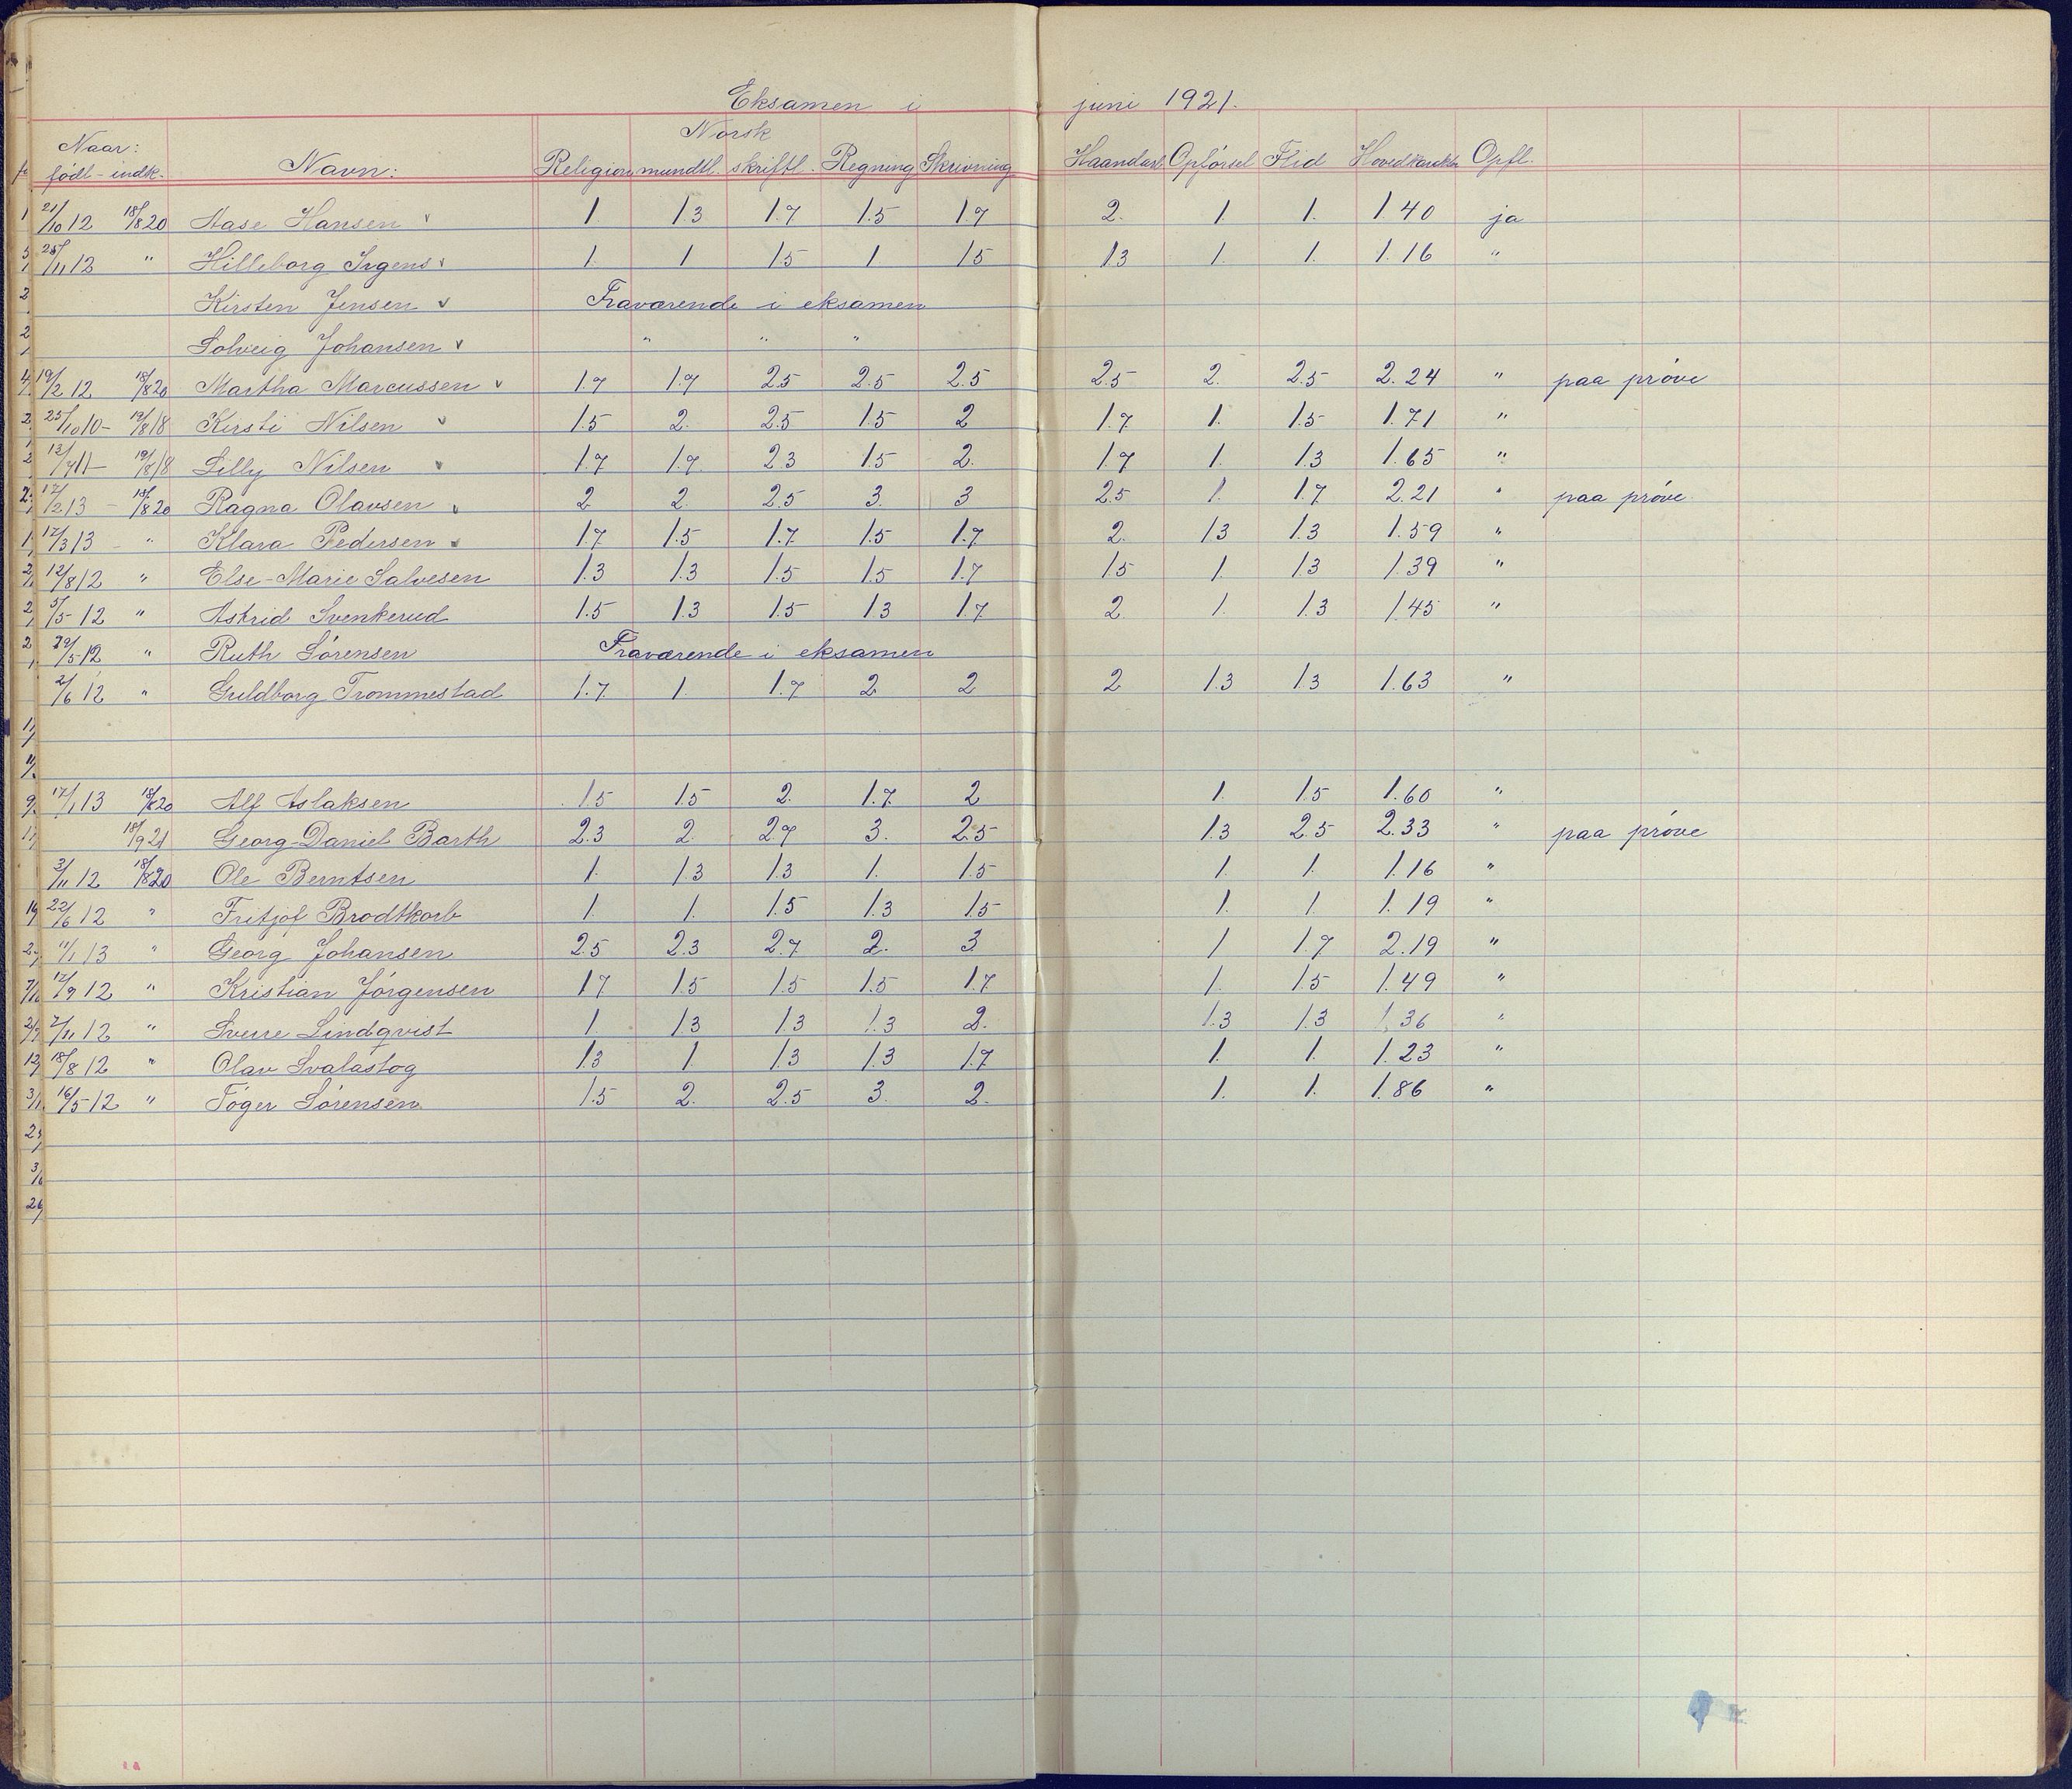 Eksamen i juni 1921.
Naar: Norsk
födt - indk. Navn: Religion mundtl. skriftl. Regning Skrivning Haandarb. Opförsel Flid Hovedkarakter Opfl.
21/10 12 18/8 20 Aase Hansen v 1 1.3 1.7 1.5 1.7 2. 1. 1. 1.40 ja
25/11 12 " Hilleborg Irgens v 1. 1 1.5 1 1.5 1.3 1. 1. 1.16 "
Kirsten Jensen v Fraværende i eksamen
Solveig Johansen v " " "
19/2 12 18/8 20 Martha Marcussen v 1.7 1.7 2.5 2.5 2.5 2.5 2. 2.5 2.24 " paa pröve
25/10 10 - 19/8 18 Kirsti Nilsen v 1.5 2. 2.5 1.5 2 1.7 1. 1.5 1.71 "
12/7 11 - 19/8 18 Lilly Nilsen v 1.7 1.7 2.3 1.5 2. 1.7 1. 1.3 1.65 "
17/2 13 - 18/8 20 Ragna Olavsen v 2 2. 2.5 3. 3 2.5 1. 1.7 2.21 " paa pröve
17/3 13 - " Klara Pedersen v 1.7 1.5 1.7 1.5 1.7 2. 1.3 1.3 1.59 "
12/8 12 " Else-Marie Salvesen 1.3 1.3 1.5 1.5 1.7 1.5 1. 1.3 1.39 "
5/5 12 " Astrid Svenkerud 1.5 1.3 1.5 1.3 1.7 2 1. 1.3 1.45 "
29/5 12 " Ruth Sörensen Fraværende i eksamen
2/6 12 " Guldborg Trommestad 1.7 1. 1.7 2 2 2 1.3 1.3 1.63 "
17/1 13 18/8 20 Alf Aslaksen 1.5 1.5 2. 1.7 2 1. 1.5 1.60 "
18/9 21 Georg-Daniel Barth 2.3 2. 2.7 3. 2.5 1.3 2.5 2.33 " paa pröve
3/11 12 18/8 20 Ole Berntsen 1. 1.3 1.3 1. 1.5 1. 1. 1.16 "
22/6 12 " Fritjof Brodtkorb 1. 1. 1.5 1.3 1.5 1. 1. 1.19 "
11/1 13 " Georg Johansen 2.5 2.3 2.7 2. 3 1 1.7 2.19 "
17/9 12 " Kristian Jörgensen 1.7 1.5 1.5 1.5 1.7 1. 1.5 1.49 "
7/11 12 " Sverre Lindqvist 1 1.3 1.3 1.3 2. 1.3 1.3 1.36 "
18/8 12 " Olav Svalastog 1.3 1 1.3 1.3 1.7 1. 1. 1.23 "
16/5 12 " Töger Sörensen 1.5 2. 2.5 3. 2. 1. 1. 1.86 "